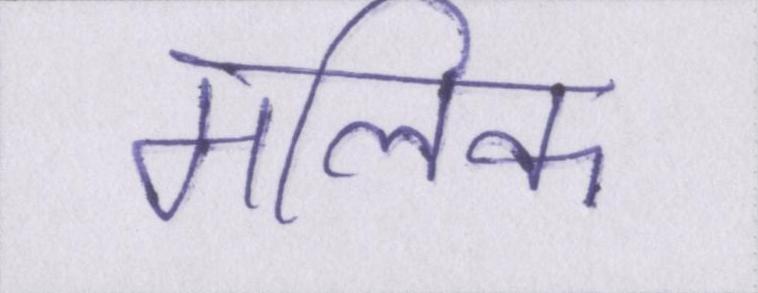 मलिक